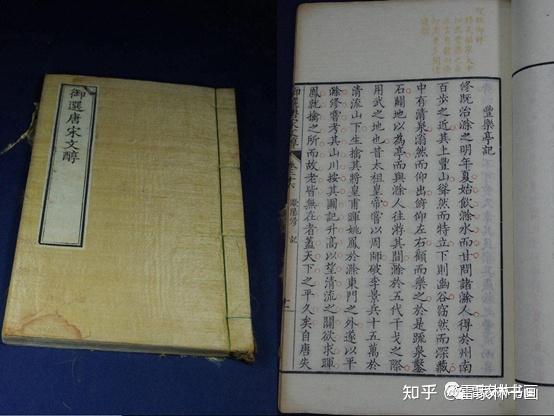 御選唐宋文醇
豐樂亭記
修既治滁之明年夏始飲滁水而甘問諸滁人得於州南
百步之近其上豐山聳然而特立下則幽谷窈然而深藏
中有清泉滃然而仰出俯仰左右顧而樂之於是疏泉鑿
石闢地以為亭而與滁人往遊其間滁於五代干戈之際
用武之地也昔太祖皇帝嘗以周師破李景兵十五萬於
清流山下生擒其將皇甫暉姚鳳於滁東門之外遂以平
滁修嘗考其山川按其圖記升高以望清流之關欲求暉
鳳就擒之所而故老皆無在者蓋天下之平久矣自唐失
御選唐宋文醇 歐陽修 記
知乎